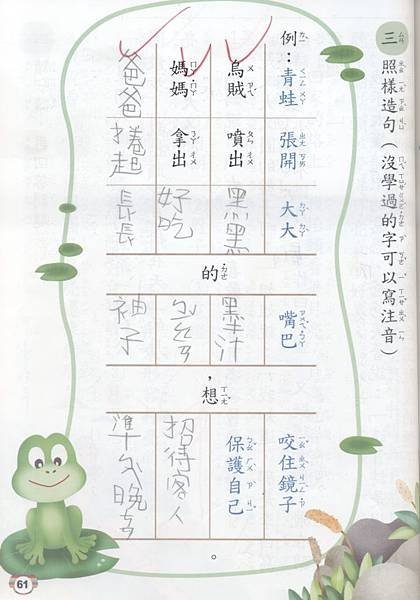 三 照樣造句(沒學過的字可以寫注音)
例:青蛙 張開 大大 的 嘴巴 ,想 咬住鏡子 。
烏賊 噴出 黑黑 墨汁 保護自己
媽媽 拿出 好吃 招待客人
爸爸 捲起 長長 袖子 準 晚
61